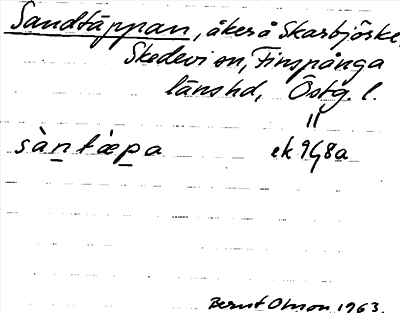 Sandtäppan, åker å Skarbjörke
Skedevi sn, Finspånga
länshd, Östg. l.
sàntæpa ek 9G8a
Bernt Olsson 1963.